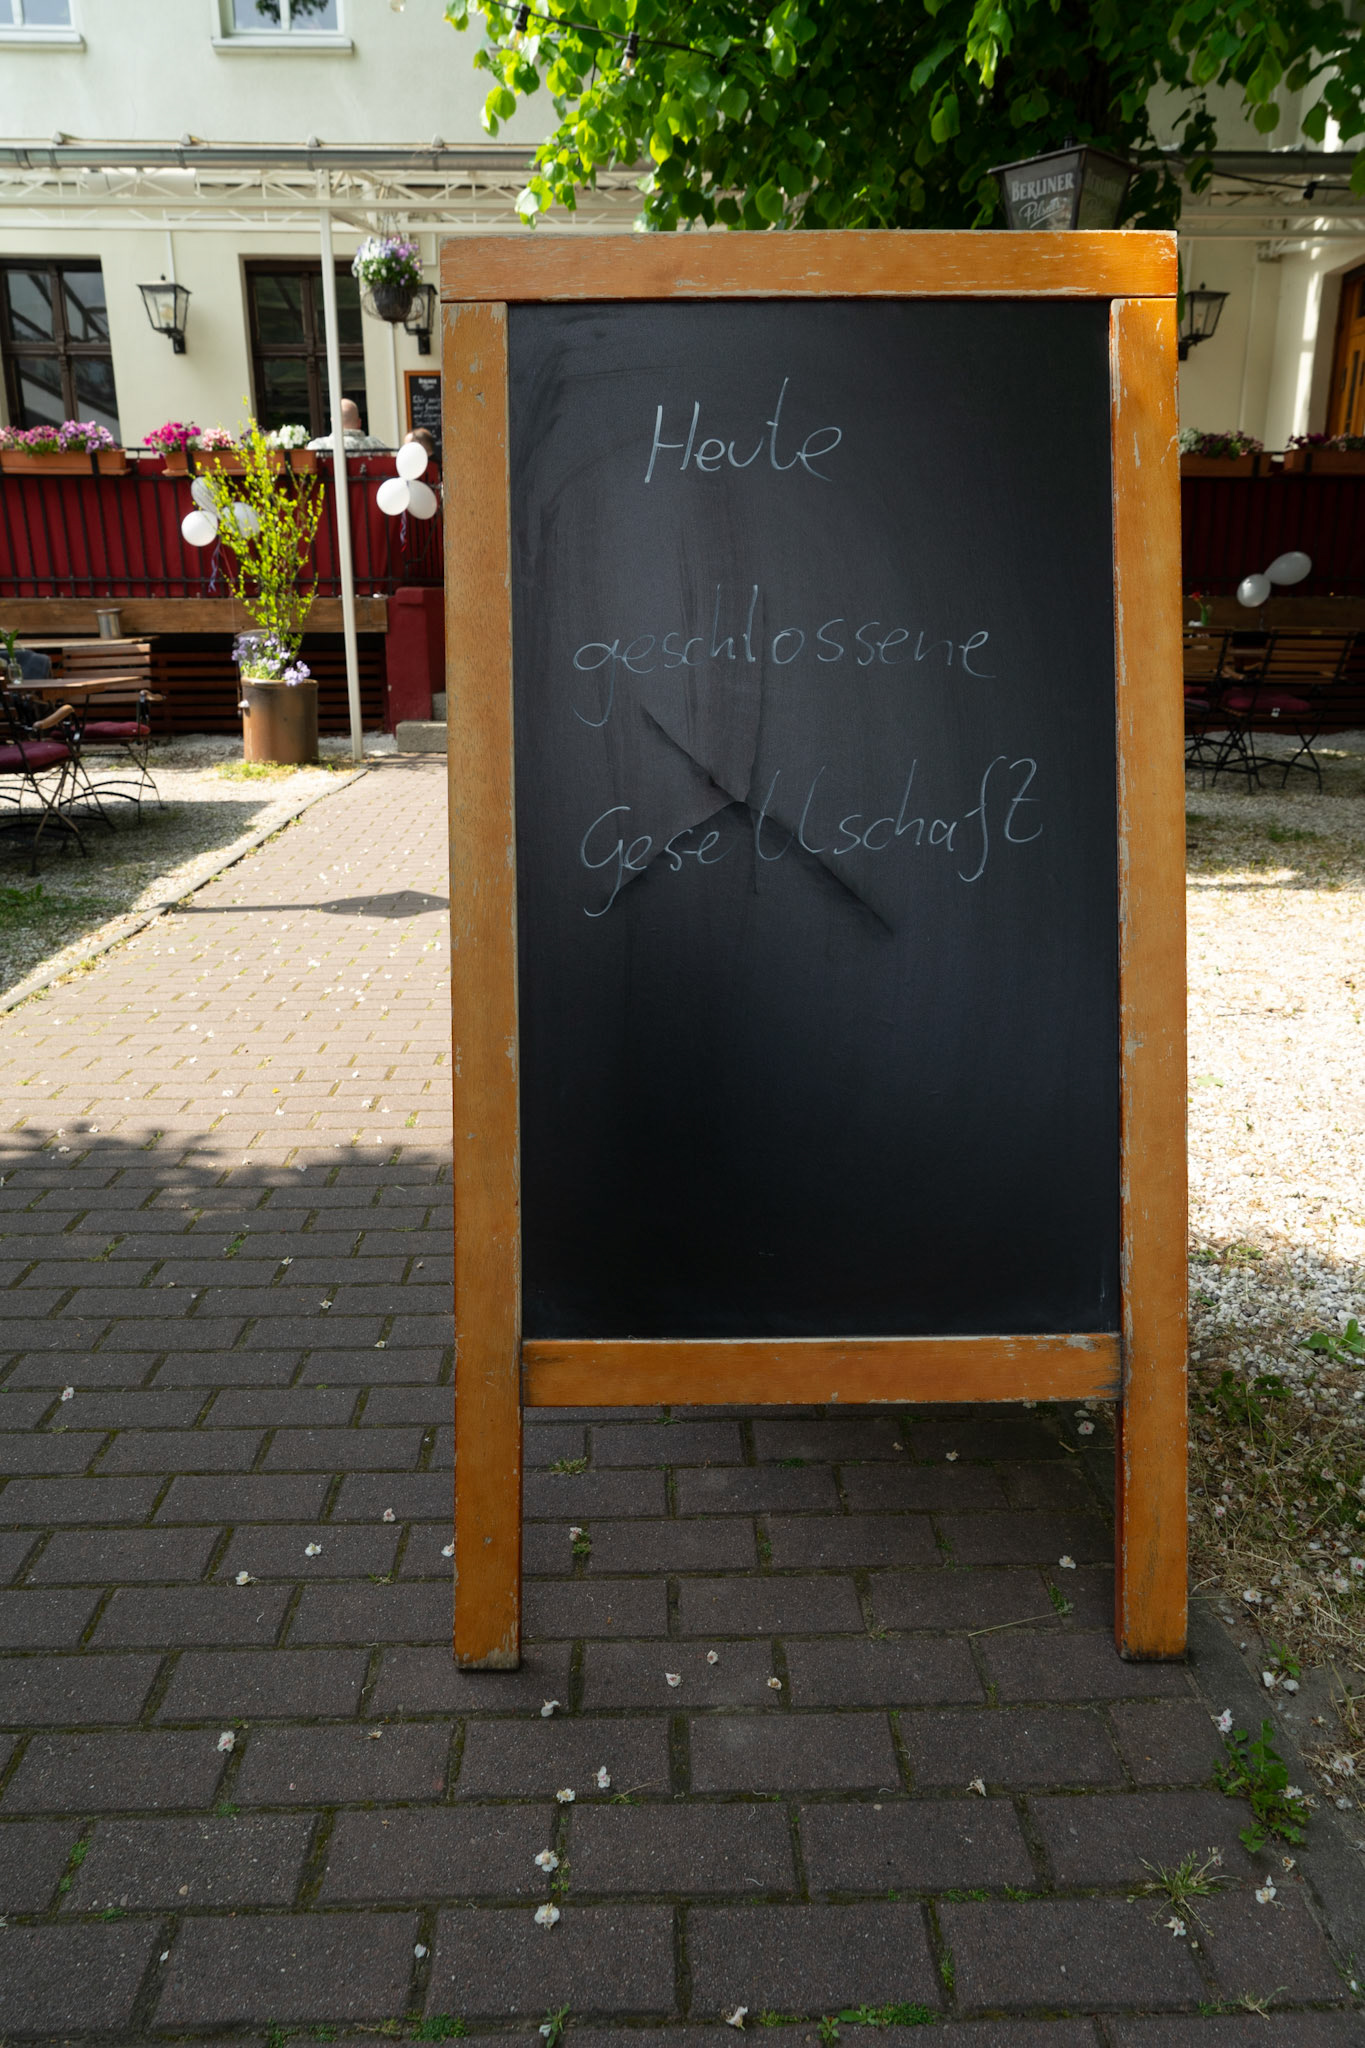 BERLINER
Pilsner
Heute
geschlossene
Gesellschaft